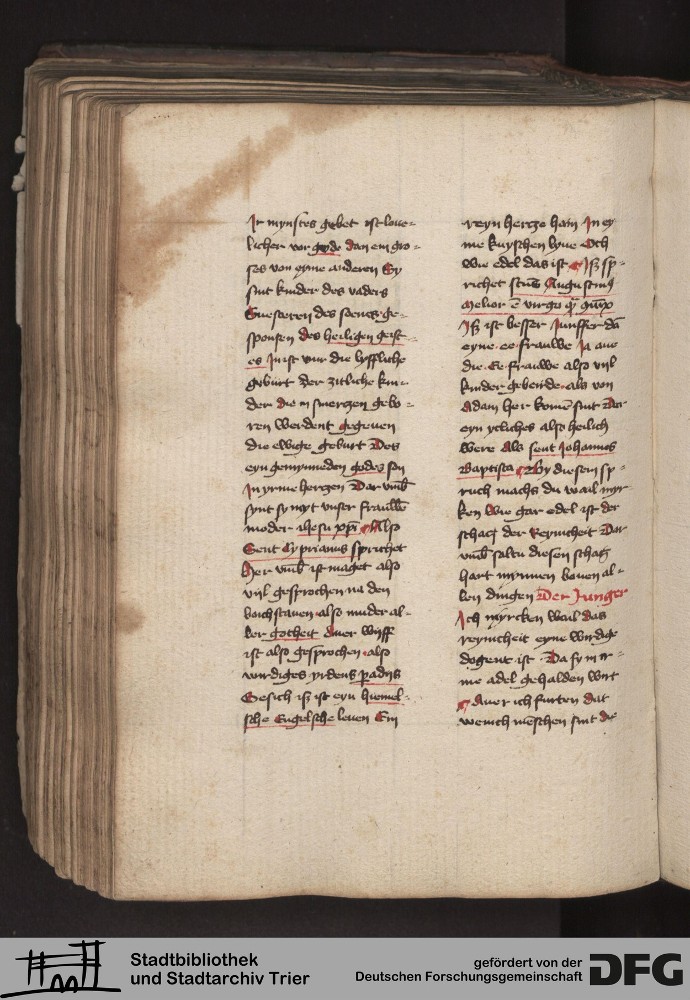 Ir mynstes gebet ist loue-
licher vor gode dan ein gro-
ses von eyme anderen Sy
sint kinder des vaders
Suesteren des soens ge-
sponsen des heiligen geist-
es In ist vur die lyffliche
geburt der zitliche kin-
der die in smerczen gebo-
ren werdent gegeuen
die ewige geburt Des
eyn gemynneden godes son
In yrme herczen Dar vmb
synt sy myt vnser frauwen
moder ihesu xpi Also
Sent Cyprianus sprichet
Her vmb ist maget also
vyl gesprochen na den
boichstauen also muder al-
ler gotheit Auer wyff
ist also gesprochen also
wirdiges yrdens padijs
Gesich iß ist eyn hiemel-
sche Engelsche leuen Ein
reyn hercze hain In ey-
me kuyschen lyue Och
wie edel das ist Iß sp-
richet sctus Augustinus
Melior e virgo
Iß ist besser Junffer dan
eyne ee frauwe Ja aue
die Ee frauwe also vyl
kinder gebeirde als von
Adam her komen sint Der
eyn ycliches also heilich
were Als sent Johannes
Baptista By diesem sp-
ruch machs du wail myr-
ken wie gar edel ist der
schacz der Reynicheit Dar
vmb saltu diesen schacz
hart mynnen bouen al-
len dingen Der Junger
Ich myrcken wail das
reynicheit eyne wirdige
dogent ist Da sy in ir-
me adel gehalden wirt
Auer ich furten dat
wenich menschen sint die
Stadtbibliothek
und Stadtarchiv Trier
gefördert von der
Deutschen Forschungsgemeinschaft
DFG